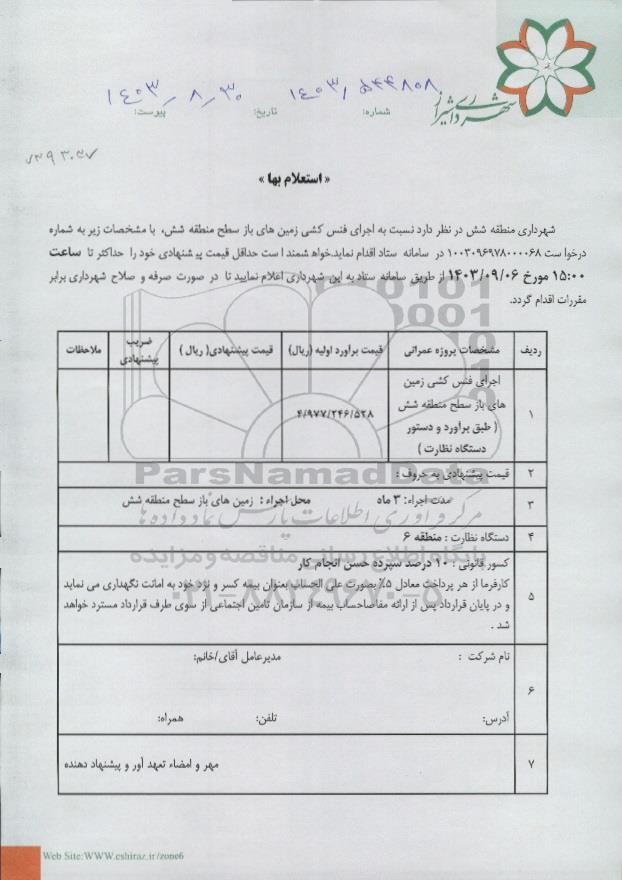 شهرداری شیراز
شماره: ۱۴۰۳/۵۴۴۸۰۸
تاریخ: ۱۴۰۳/۸/۳۰
پیوست:
« استعلام بها »
شهرداری منطقه شش در نظر دارد نسبت به اجرای فنس کشی زمین های باز سطح منطقه شش، با مشخصات زیر به شماره
درخواست ۱۰۰۳۰۹۶۹۷۸۰۰۰۰۶۸ در سامانه ستاد اقدام نماید.خواهشمند است حداقل قیمت پیشنهادی خود را حداکثر تا ساعت
۱۵:۰۰ مورخ ۱۴۰۳/۰۹/۰۶ از طریق سامانه ستاد به این شهرداری اعلام نمایید تا در صورت صرفه و صلاح شهرداری برابر
مقررات اقدام گردد.
ردیف مشخصات پروژه عمرانی قیمت برآورد اولیه (ریال) قیمت پیشنهادی( ریال ) ضریب پیشنهادی ملاحظات
۱ اجرای فنس کشی زمین
های باز سطح منطقه شش
( طبق برآورد و دستور
دستگاه نظارت )
۴/۹۷۷/۲۴۶/۵۲۸
۲ قیمت پیشنهادی به حروف :
۳ مدت اجراء: ۳ ماه محل اجراء : زمین های باز سطح منطقه شش
۴ دستگاه نظارت : منطقه ۶
۵ کسور قانونی : ۱۰ درصد سپرده حسن انجام کار
کارفرما از هر پرداخت معادل ۵٪ بصورت علی الحساب بعنوان بیمه کسر و نزد خود به امانت نگهداری می نماید
و در پایان قرارداد پس از ارائه مفاصاحساب بیمه از سازمان تامین اجتماعی از سوی طرف قرارداد مسترد خواهد
شد .
۶ نام شرکت : مدیرعامل آقای/خانم:
آدرس: تلفن: همراه:
۷ مهر و امضاء تعهد آور و پیشنهاد دهنده
ParsNamadData
مرکز فرآوری اطلاعات پارس نماد داده ها
پایگاه اطلاع رسانی مناقصه و مزایده
۰۲۱-۸۸۳۴۹۶۷۰-۵
Web Site:WWW.eshiraz.ir/zone6